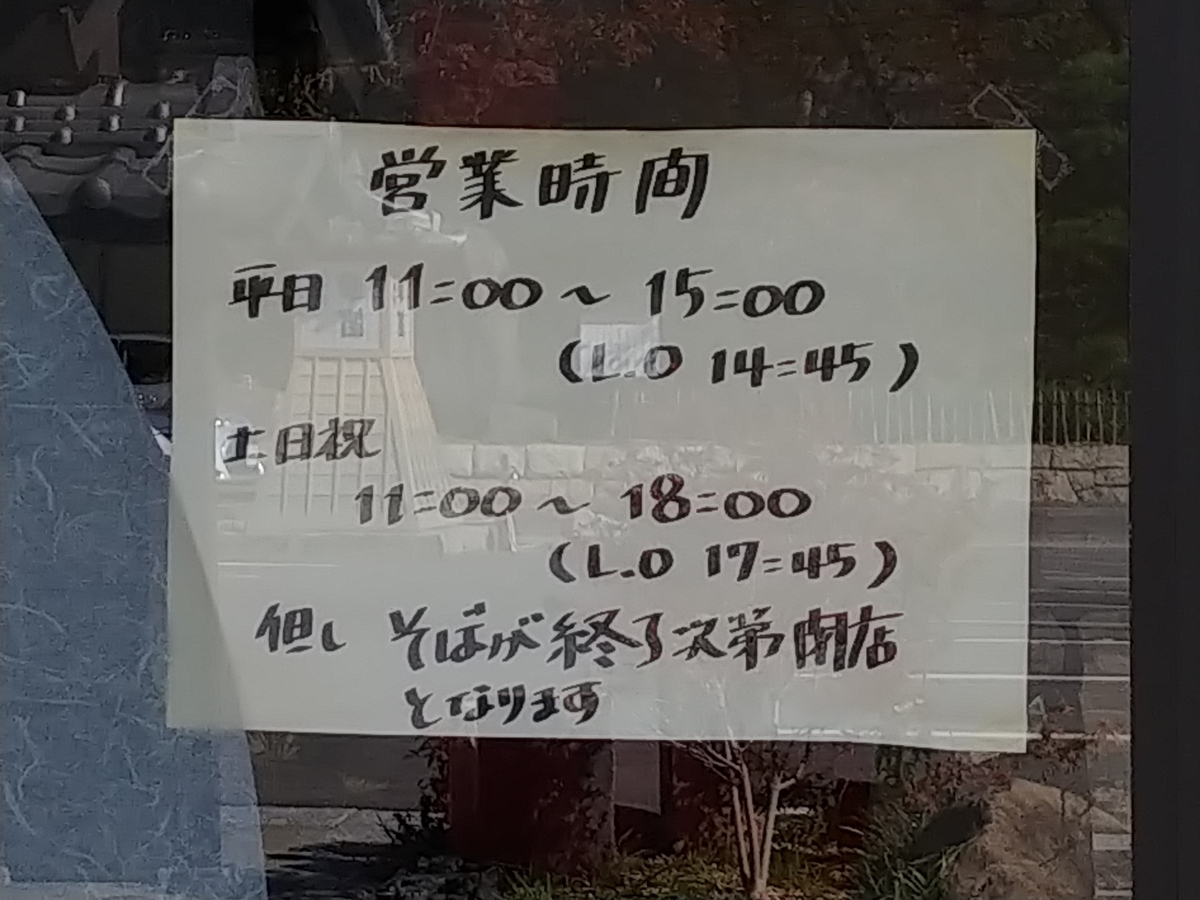 営業時間
平日 11:00〜15:00
(L.O 14:45)
土日祝
11:00〜18:00
(L.O 17:45)
但し そばが終了次第閉店
となります